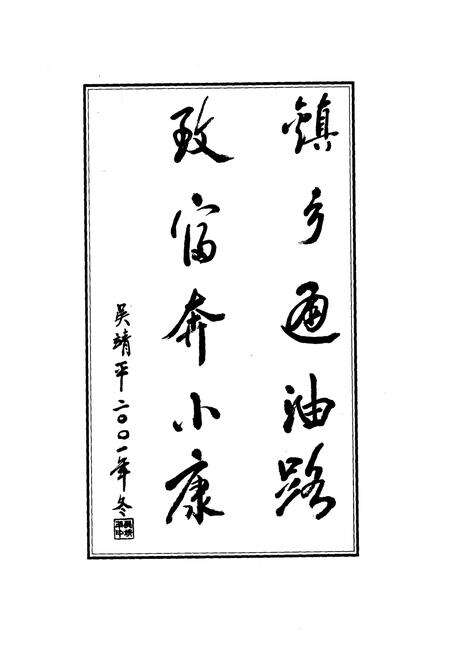 鎮乡通油路
致富奔小康
吴靖平二〇〇一年冬